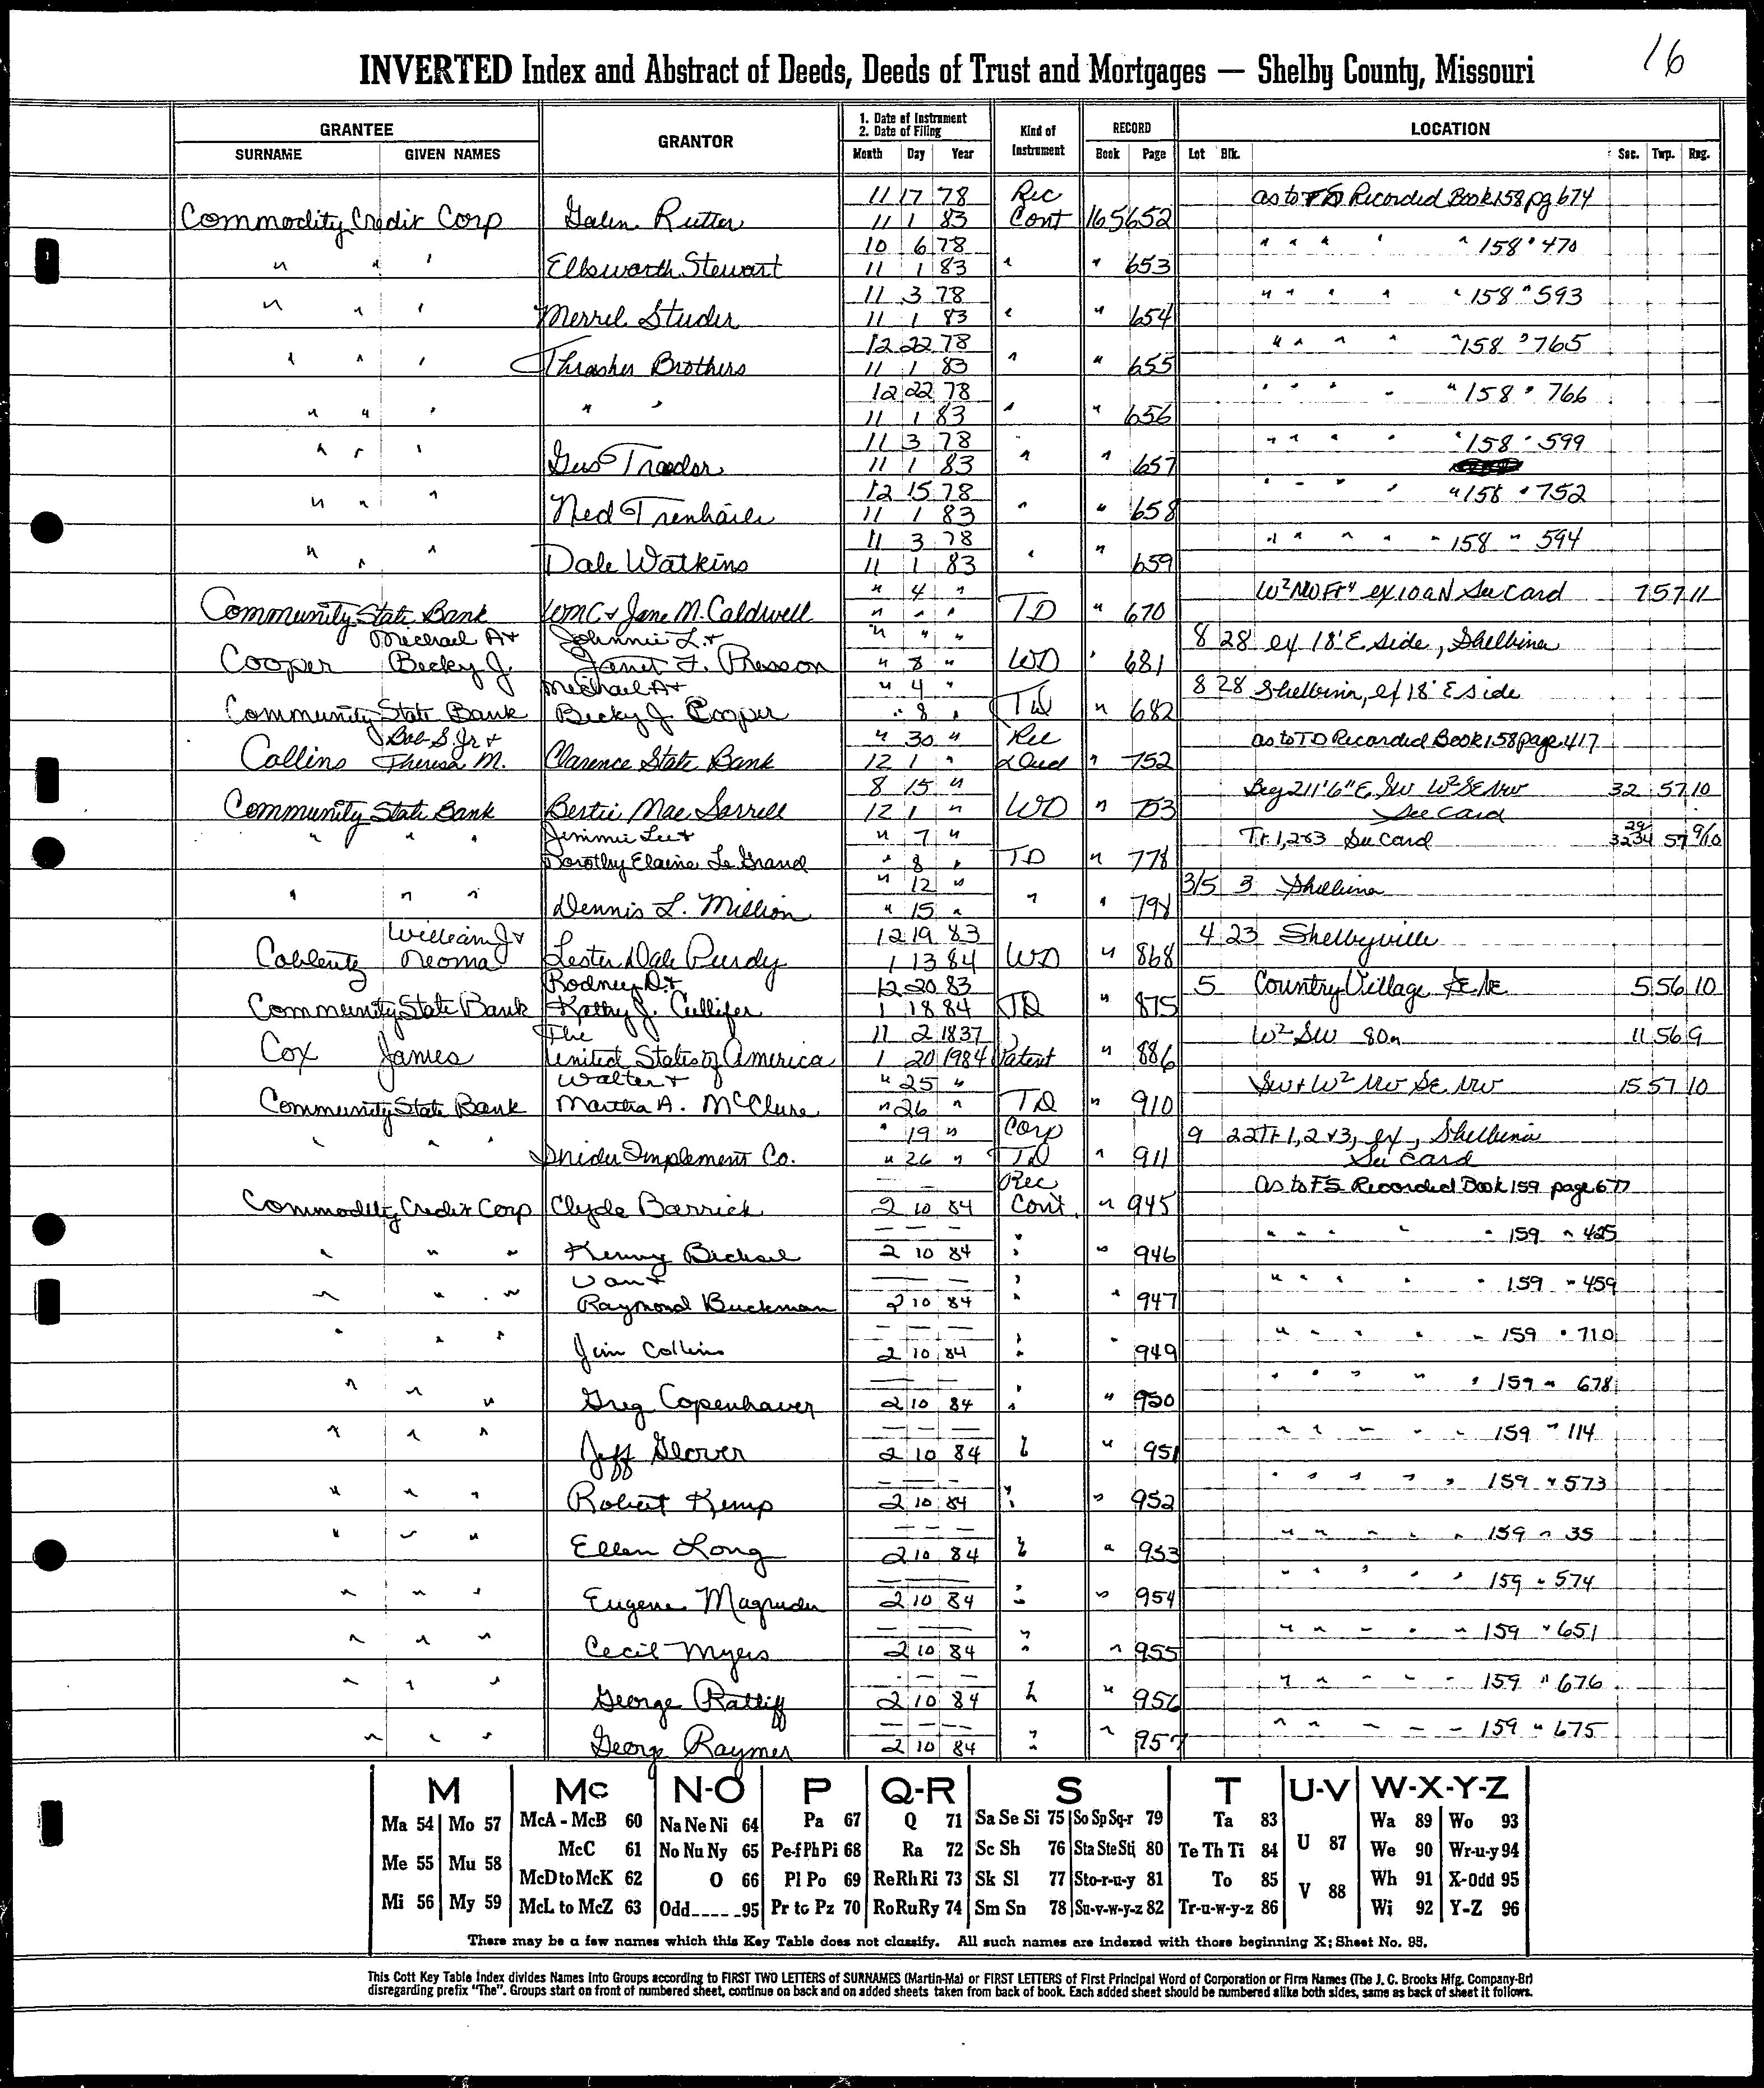 16
INVERTED Index and Abstract of Deeds, Deeds of Trust and Mortgages — Shelby County, Missouri
GRANTEE GRANTOR 1. Date of Instrument 2. Date of Filing Kind of Instrument RECORD LOCATION
SURNAME GIVEN NAMES Month Day Year Book Page Lot Blk. Sec. Twp. Rng.
11 17 78 Rec as to FS Recorded Book 158 pg 674
Commodity Credit Corp Galen Rutter 11 1 83 Cont 165 652
10 6 78 " " " " " 158 " 470
" " " Ellsworth Stewart 11 1 83 " " 653
11 3 78 " " " " " 158 " 593
" " " Merrel Studer 11 1 83 " " 654
12 22 78 " " " " " 158 " 765
" " " Thrasher Brothers 11 1 83 " " 655
12 22 78 " " " " " 158 " 766
" " " " " 11 1 83 " " 656
11 3 78 " " " " " 158 " 599
" " " Gus Traeder 11 1 83 " " 657
12 15 78 " " " " " 158 " 752
" " " Ned Trenhaile 11 1 83 " " 658
11 3 78 " " " " " 158 " 594
" " " Dale Watkins 11 1 83 " " 659
" 4 " W² NW Fr⁴ ex 10a N See Card 7 57 11
Community State Bank Wm C & Jane M. Caldwell " " " TD " 670
Michael A + Johnnie L. + " " " 8 28 ex 18' E side, Shelbina
Cooper Becky J. Janet F. Presson " 8 " WD " 681
Michael A + " 4 " 8 28 Shelbina, ex 18' E side
Community State Bank Becky J. Cooper " 8 " TD " 682
Bob S Jr + " 30 " Rel as to TD Recorded Book 158 page 417
Collins Theresa M. Clarence State Bank 12 1 " Deed " 752
8 15 " Beg 211'6" E SW W² SE NW 32 57 10
Community State Bank Bertie Mae Sorrell 12 1 " WD " 753 See Card
Jimmie Lee + " 7 " Tr. 1, 2 & 3 See Card 29 32 34 57 9/10
" " " Dorothy Elaine Le Grand " 8 " TD " 778
" 12 " 3/5 3 Shelbina
" " " Dennis L. Million " 15 " " " 798
William J + 12 19 83 4 23 Shelbyville
Coblentz Neoma Lester Dale Purdy 1 13 84 WD " 868
Rodney D. + 12 20 83 5 Country Village SE NE 5 56 10
Community State Bank Kathy J. Cullifer 1 18 84 TD " 875
The 11 2 1837 W² SW 80a 11 56 9
Cox James United States of America 1 20 1984 Patent " 886
Walter + " 25 " SW + W² NW SE NW 15 57 10
Community State Bank Martha A. McClure " 26 " TD " 910
" 19 " Corp 9 22 Tr 1, 2 & 3, ex, Shelbina
" " " Snider Implement Co. " 26 " TD " 911 See Card
— — Rec as to FS Recorded Book 159 page 677
Commodity Credit Corp Clyde Barrick 2 10 84 Cont. " 945
— — — " " " " " 159 " 425
" " " Kenny Bichsel 2 10 84 " " 946
Van + — — — " " " " " 159 " 459
" " " Raymond Buckman 2 10 84 " " 947
— — — " " " " " 159 " 710
" " " Jim Collins 2 10 84 " " 949
— — — " " " " " 159 " 678
" " " Greg Copenhaver 2 10 84 " " 950
— — — " " " " " 159 " 114
" " " Jeff Glover 2 10 84 " " 951
— — — " " " " " 159 " 573
" " " Robert Kemp 2 10 84 " " 952
— — — " " " " " 159 " 35
" " " Ellen Long 2 10 84 " " 953
— — — " " " " " 159 " 574
" " " Eugene Magruder 2 10 84 " " 954
— — — " " " " " 159 " 651
" " " Cecil Myers 2 10 84 " " 955
— — — " " " " " 159 " 676
" " " George Ratliff 2 10 84 " " 956
— — — " " " " " 159 " 675
" " " George Raymer 2 10 84 " " 957
M Mc N-O P Q-R S T U-V W-X-Y-Z
Ma 54 Mo 57 McA - McB 60 Na Ne Ni 64 Pa 67 Q 71 Sa Se Si 75 So Sp Sq-r 79 Ta 83 Wa 89 Wo 93
McC 61 No Nu Ny 65 Pe-f Ph Pi 68 Ra 72 Sc Sh 76 Sta Ste Sti 80 Te Th Ti 84 U 87 We 90 Wr-u-y 94
Me 55 Mu 58 McD to McK 62 O 66 Pl Po 69 Re Rh Ri 73 Sk Sl 77 Sto-r-u-y 81 To 85 V 88 Wh 91 X-Odd 95
Mi 56 My 59 McL to McZ 63 Odd 95 Pr to Pz 70 Ro Ru Ry 74 Sm Sn 78 Su-v-w-y-z 82 Tr-u-w-y-z 86 Wi 92 Y-Z 96
There may be a few names which this Key Table does not classify. All such names are indexed with those beginning X; Sheet No. 95.
This Cott Key Table Index divides Names into Groups according to FIRST TWO LETTERS of SURNAMES (Martin-Ma) or FIRST LETTERS of First Principal Word of Corporation or Firm Names (The J. C. Brooks Mfg. Company-Br)
disregarding prefix "The". Groups start on front of numbered sheet, continue on back and on added sheets taken from back of book. Each added sheet should be numbered alike both sides, same as back of sheet it follows.